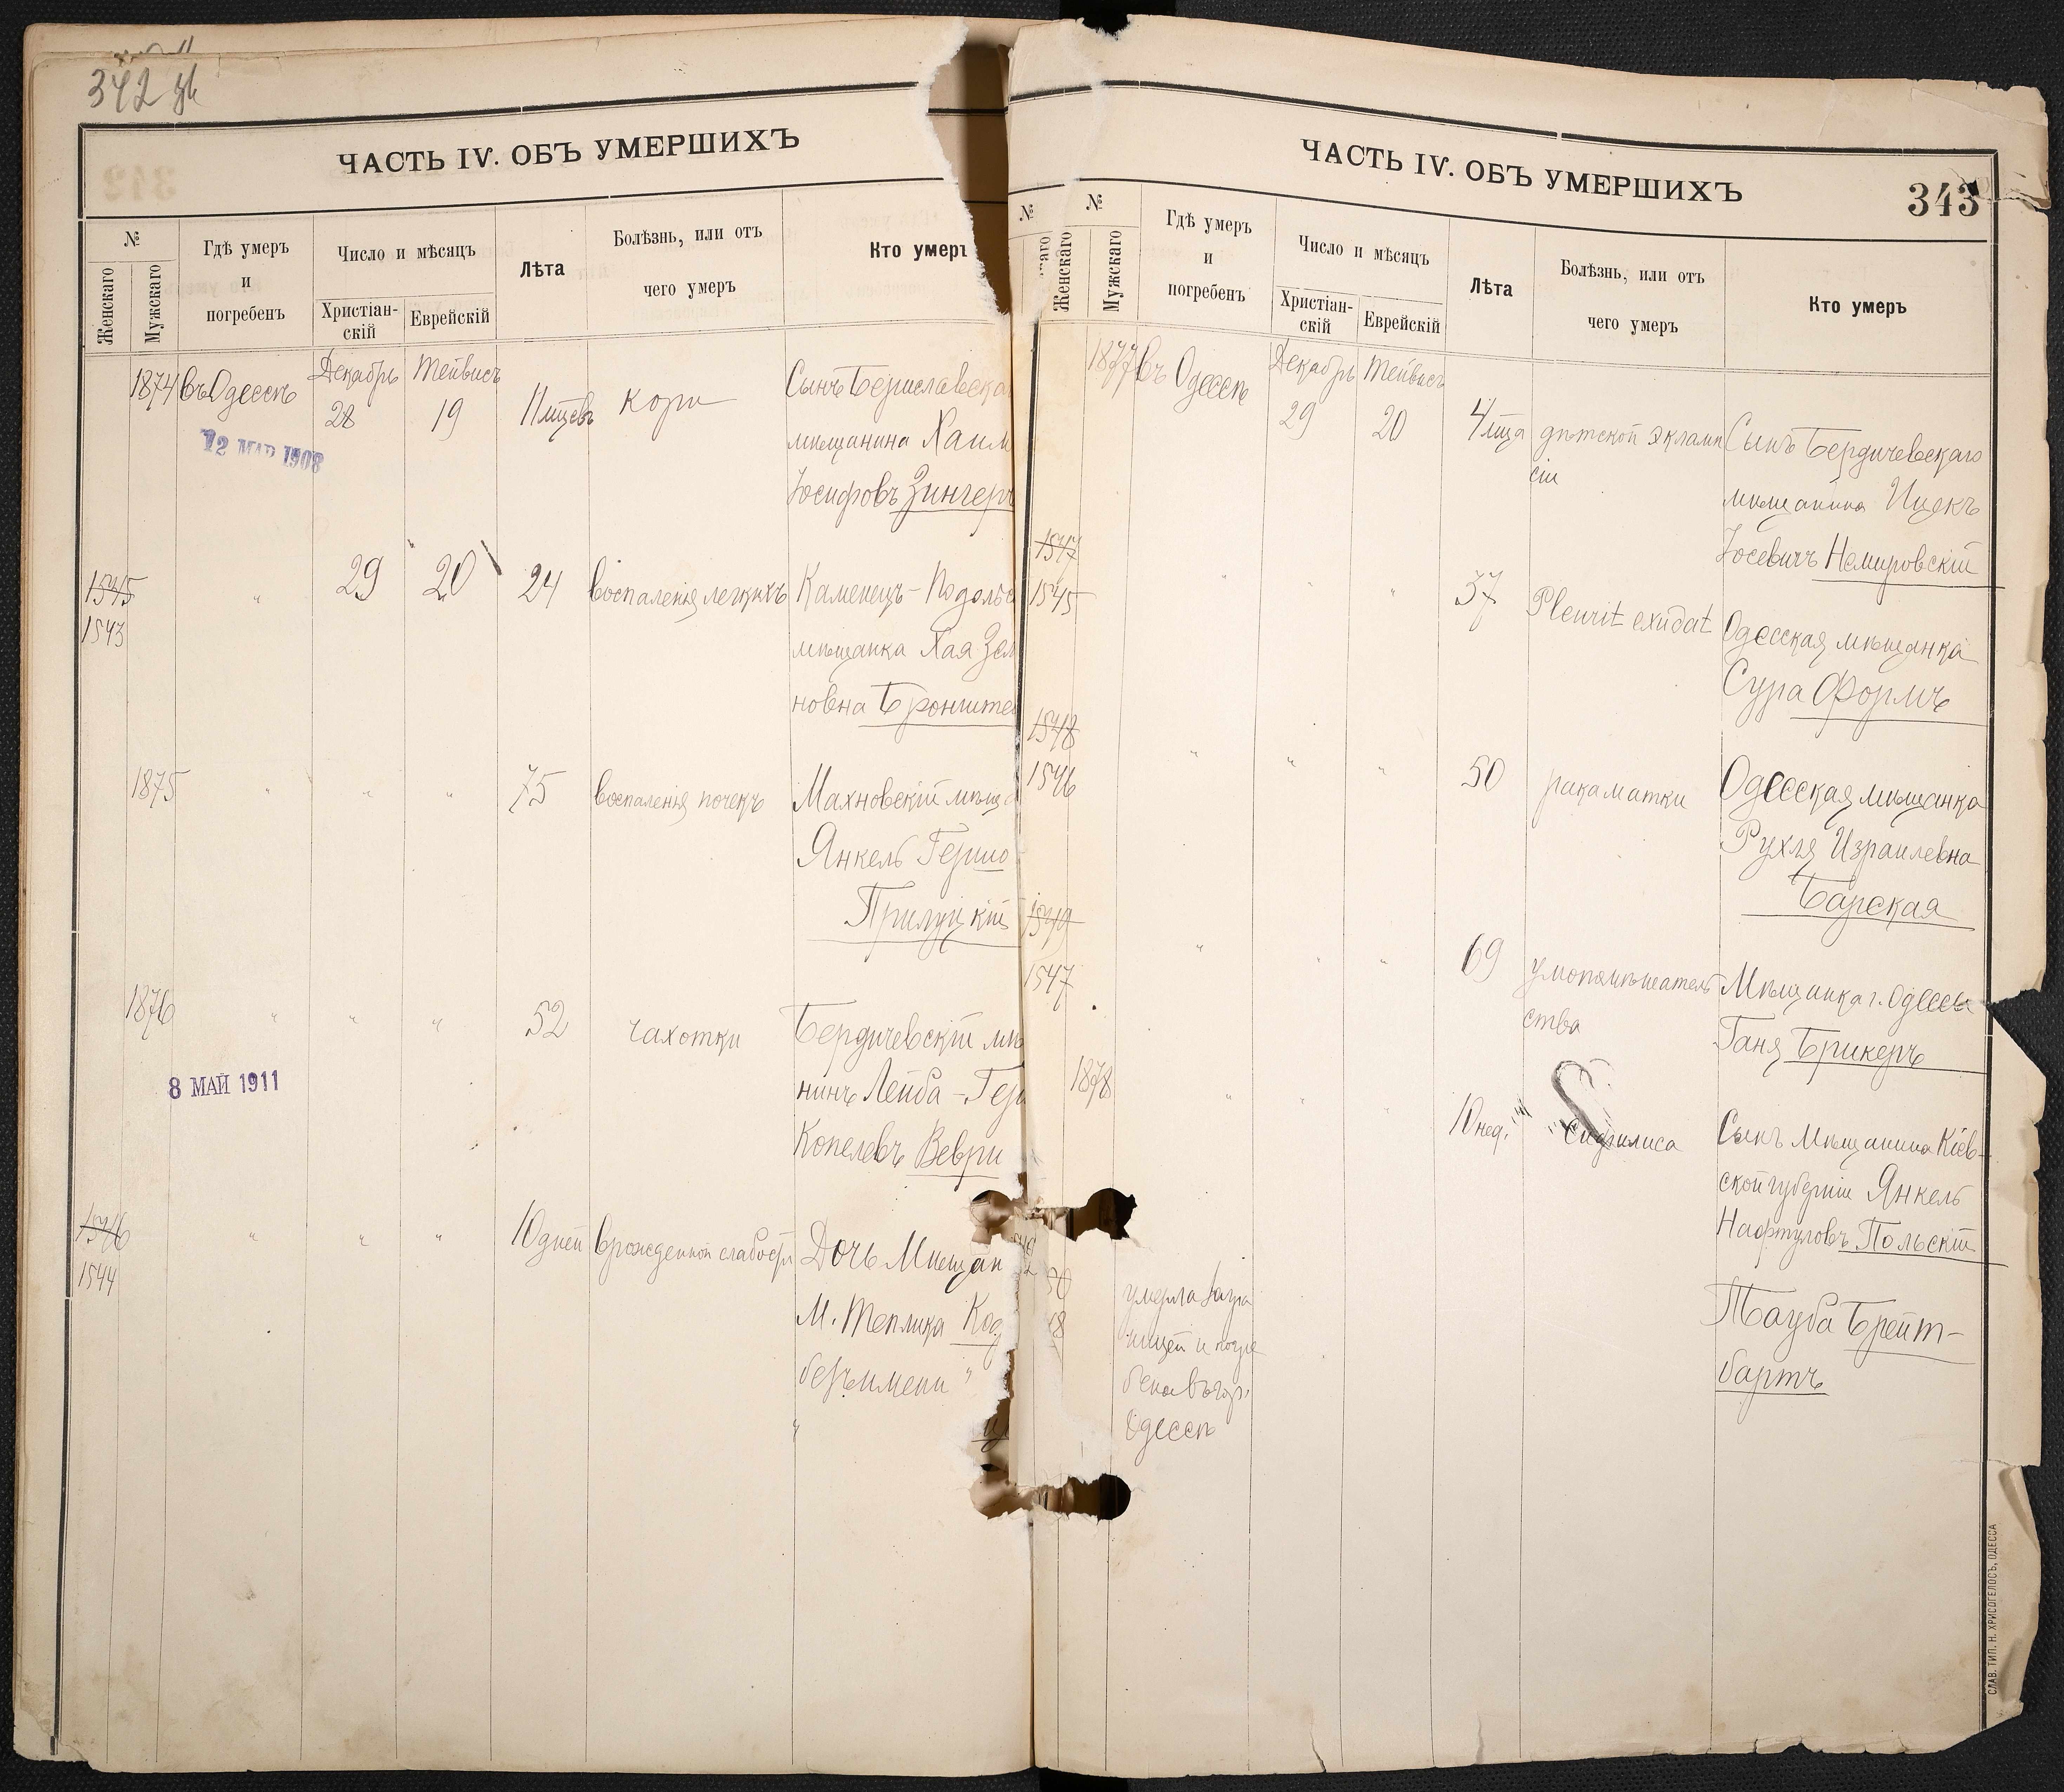 342
ЧАСТЬ IV. ОБЪ УМЕРШИХЪ
№
Женскаго
Мужскаго
Гдѣ умеръ
и
погребенъ
Число и мѣсяцъ
Христіан-
скій
Еврейскій
Лѣта
Болѣзнь, или отъ
чего умеръ
Кто умеръ
1874 въ Одессѣ Декабрь Тейвисъ
28 19 11 мцевъ кори
Сынъ Бериславска
мѣщанина Хаим
Іосифовъ Зингеръ
12 МАР 1908
1545
1543
" 29 20 24 воспаленія легкихъ
Каменецъ-Подольс
мѣщанка Хая Зел
новна Бронштей
1875 " " " 75 воспаленія почекъ
Махновскій мѣща
Янкель Гершо
Прилуцкій
1876 " " " 52 чахотки
Бердичевскій мѣ
нинъ Лейба-Гер
Копелевъ Веври
8 МАЙ 1911
1546
1544
" " " 10 дней врожденной слабости
Дочь Мѣщан
М. Теплика Код
безъ имени "
"
ЧАСТЬ IV. ОБЪ УМЕРШИХЪ
343
№
№
Женскаго
Мужскаго
Гдѣ умеръ
и
погребенъ
Число и мѣсяцъ
Христіан-
скій
Еврейскій
Лѣта
Болѣзнь, или отъ
чего умеръ
Кто умеръ
1877 въ Одессѣ Декабрь Тейвисъ
29 20 4 мца дѣтской эклампсіи
Сынъ Бердичевскаго
мѣщанина Ицекъ
Іосевичъ Немировскій
1547
1545
" " " 37 Pleurit exudat
Одесская мѣщанка
Сура Формъ
1548
1546
" " " 50 рака матки
Одесская мѣщанка
Рухля Израилевна
Барская
1549
1547
" " " 69 умопомѣшатель
ства
Мѣщанка г. Одессы
Ганя Брикеръ
1878 " " " 10 нед. Сифилиса
Сынъ Мѣщанина Кіев-
ской губерніи Янкель
Нафтуловъ Польскій
50
48
умерла загра
ницей и погре
бена въ гор.
Одессѣ
Тауба Брейт-
бартъ
СЛАВ. ТИП. Н. ХРИСОГЕЛОСЪ, ОДЕССА